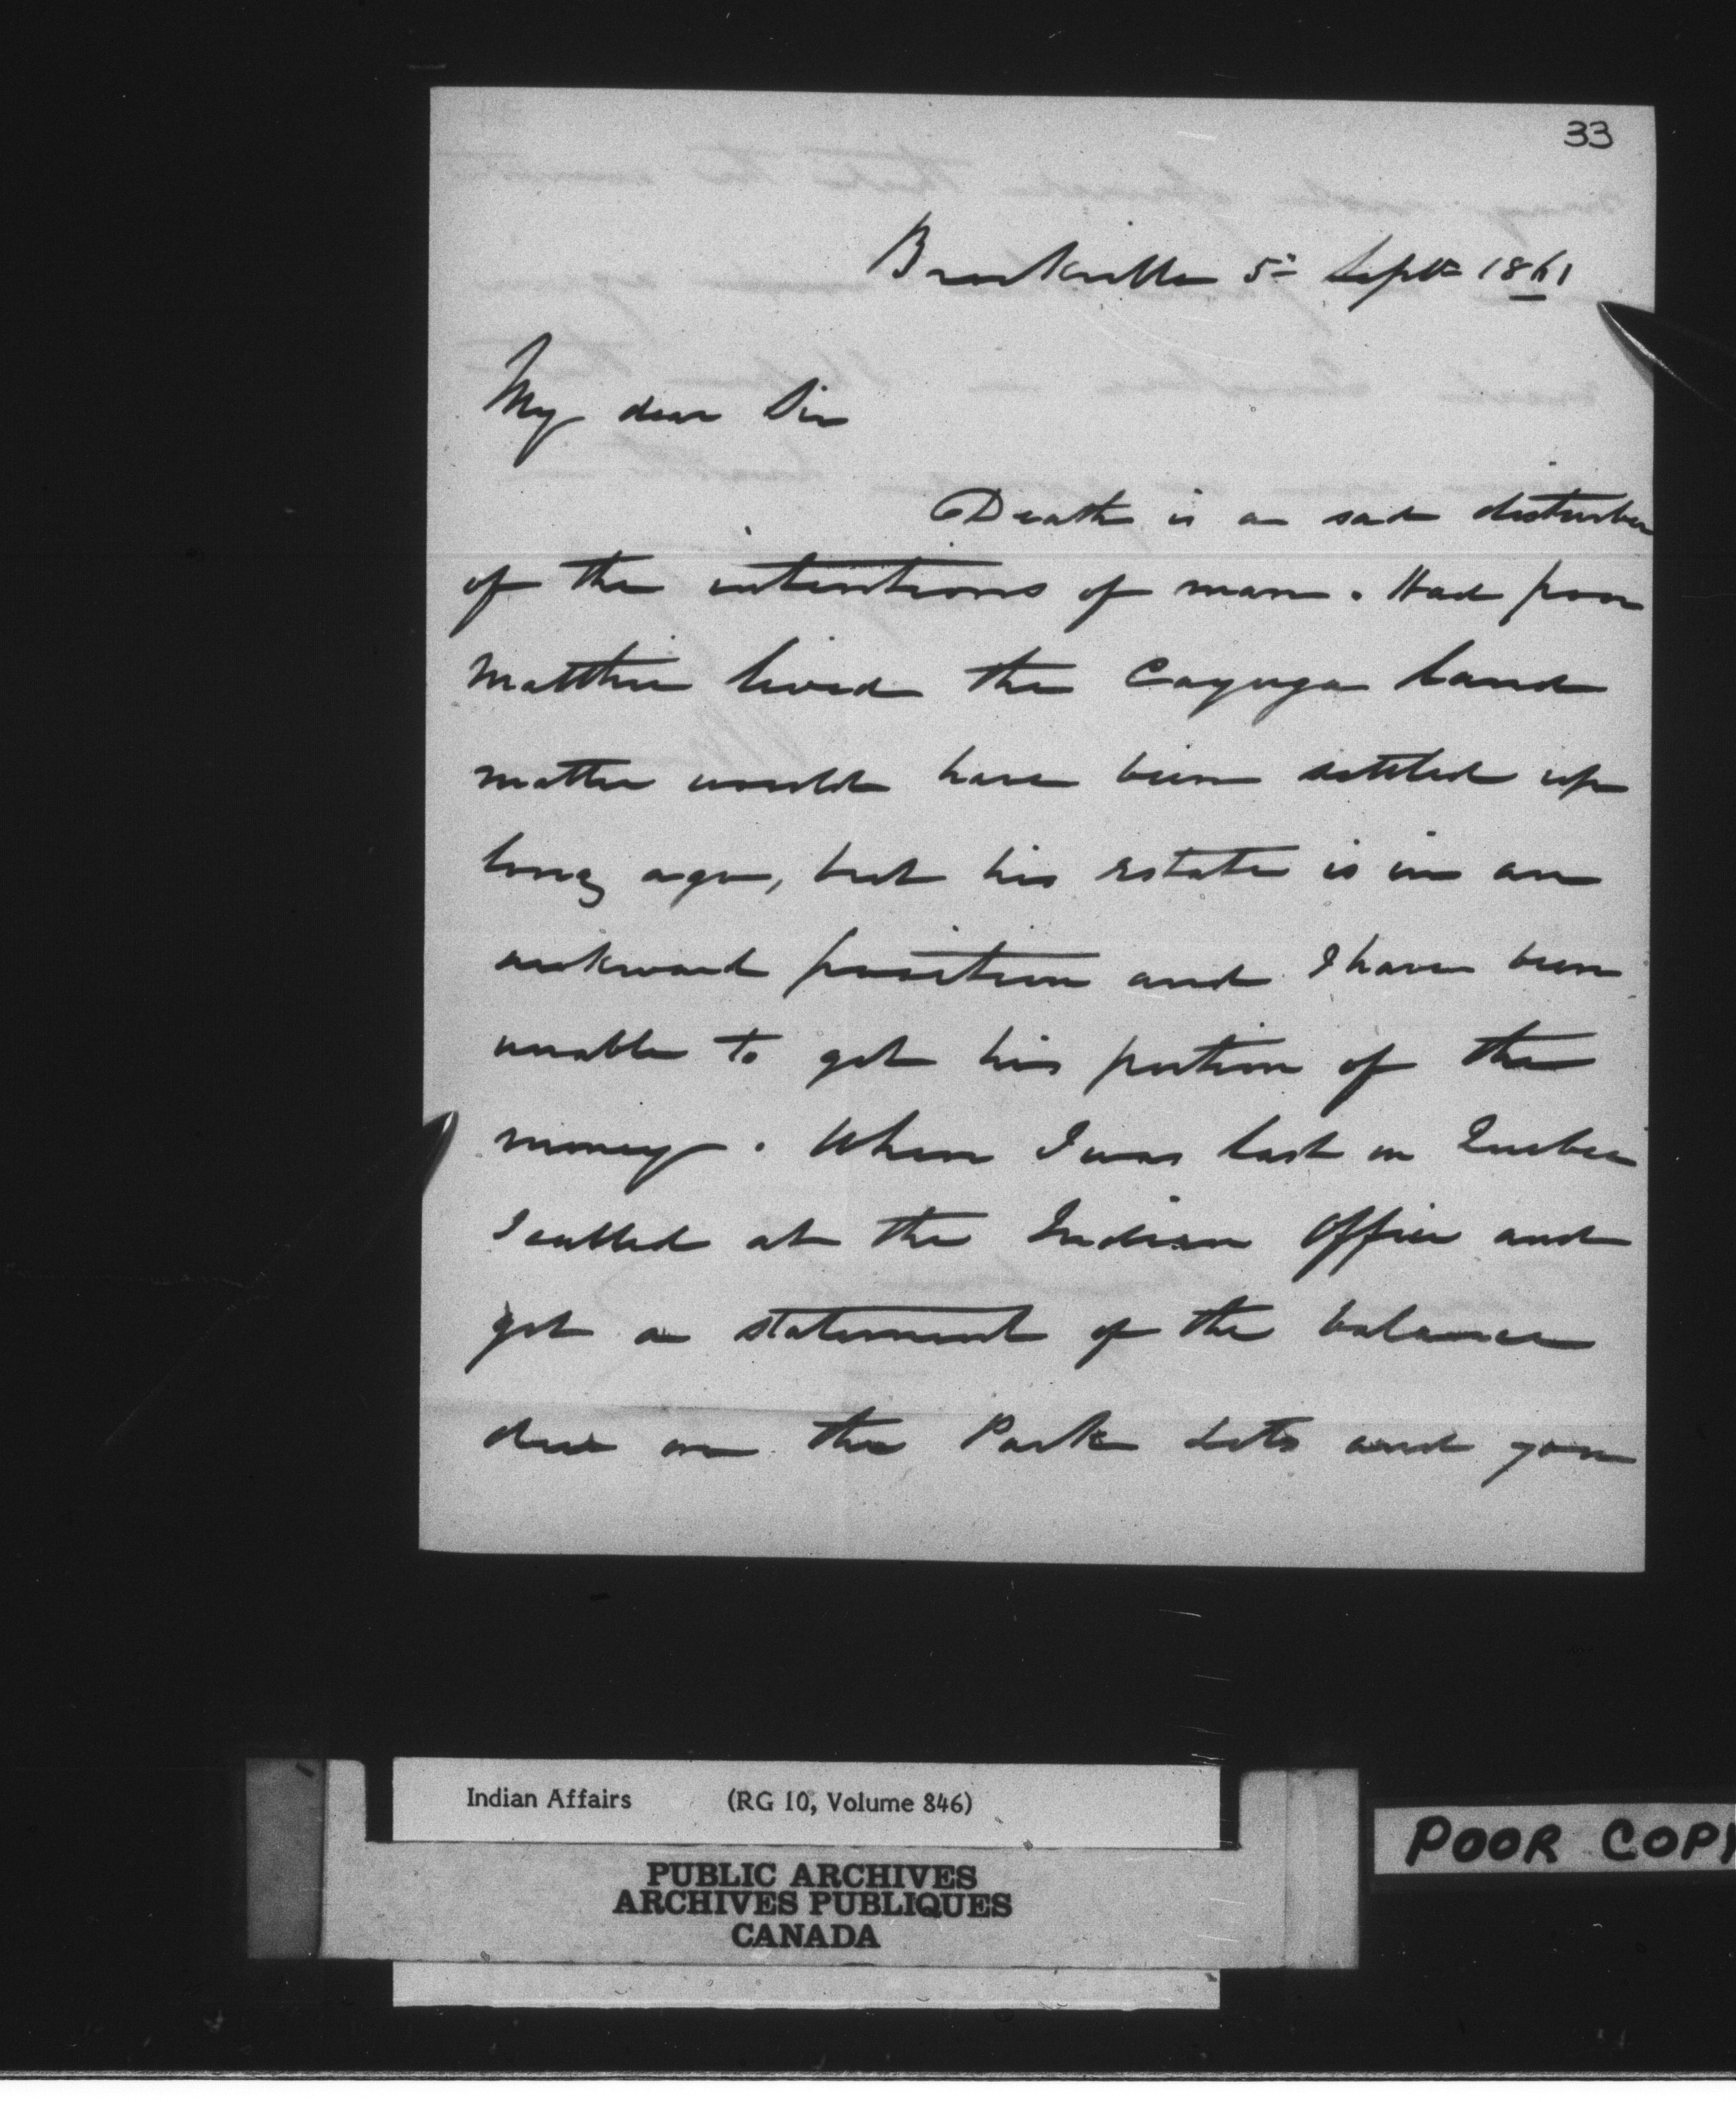 33
Brockville 5th Sept 1861
My dear Sir
Death is a sad disturber
of the intentions of man. Had poor
Matthie lived the Cayuga land
matter would have been settled up
long ago, but his estate is in an
awkward position and I have been
unable to get his portion of the
money. When I was last in Quebec
I called at the Indian Office and
got a statement of the balance
due on the Park Lots and you
Indian Affairs (RG 10, Volume 846)
PUBLIC ARCHIVES
ARCHIVES PUBLIQUES
CANADA
POOR COPY